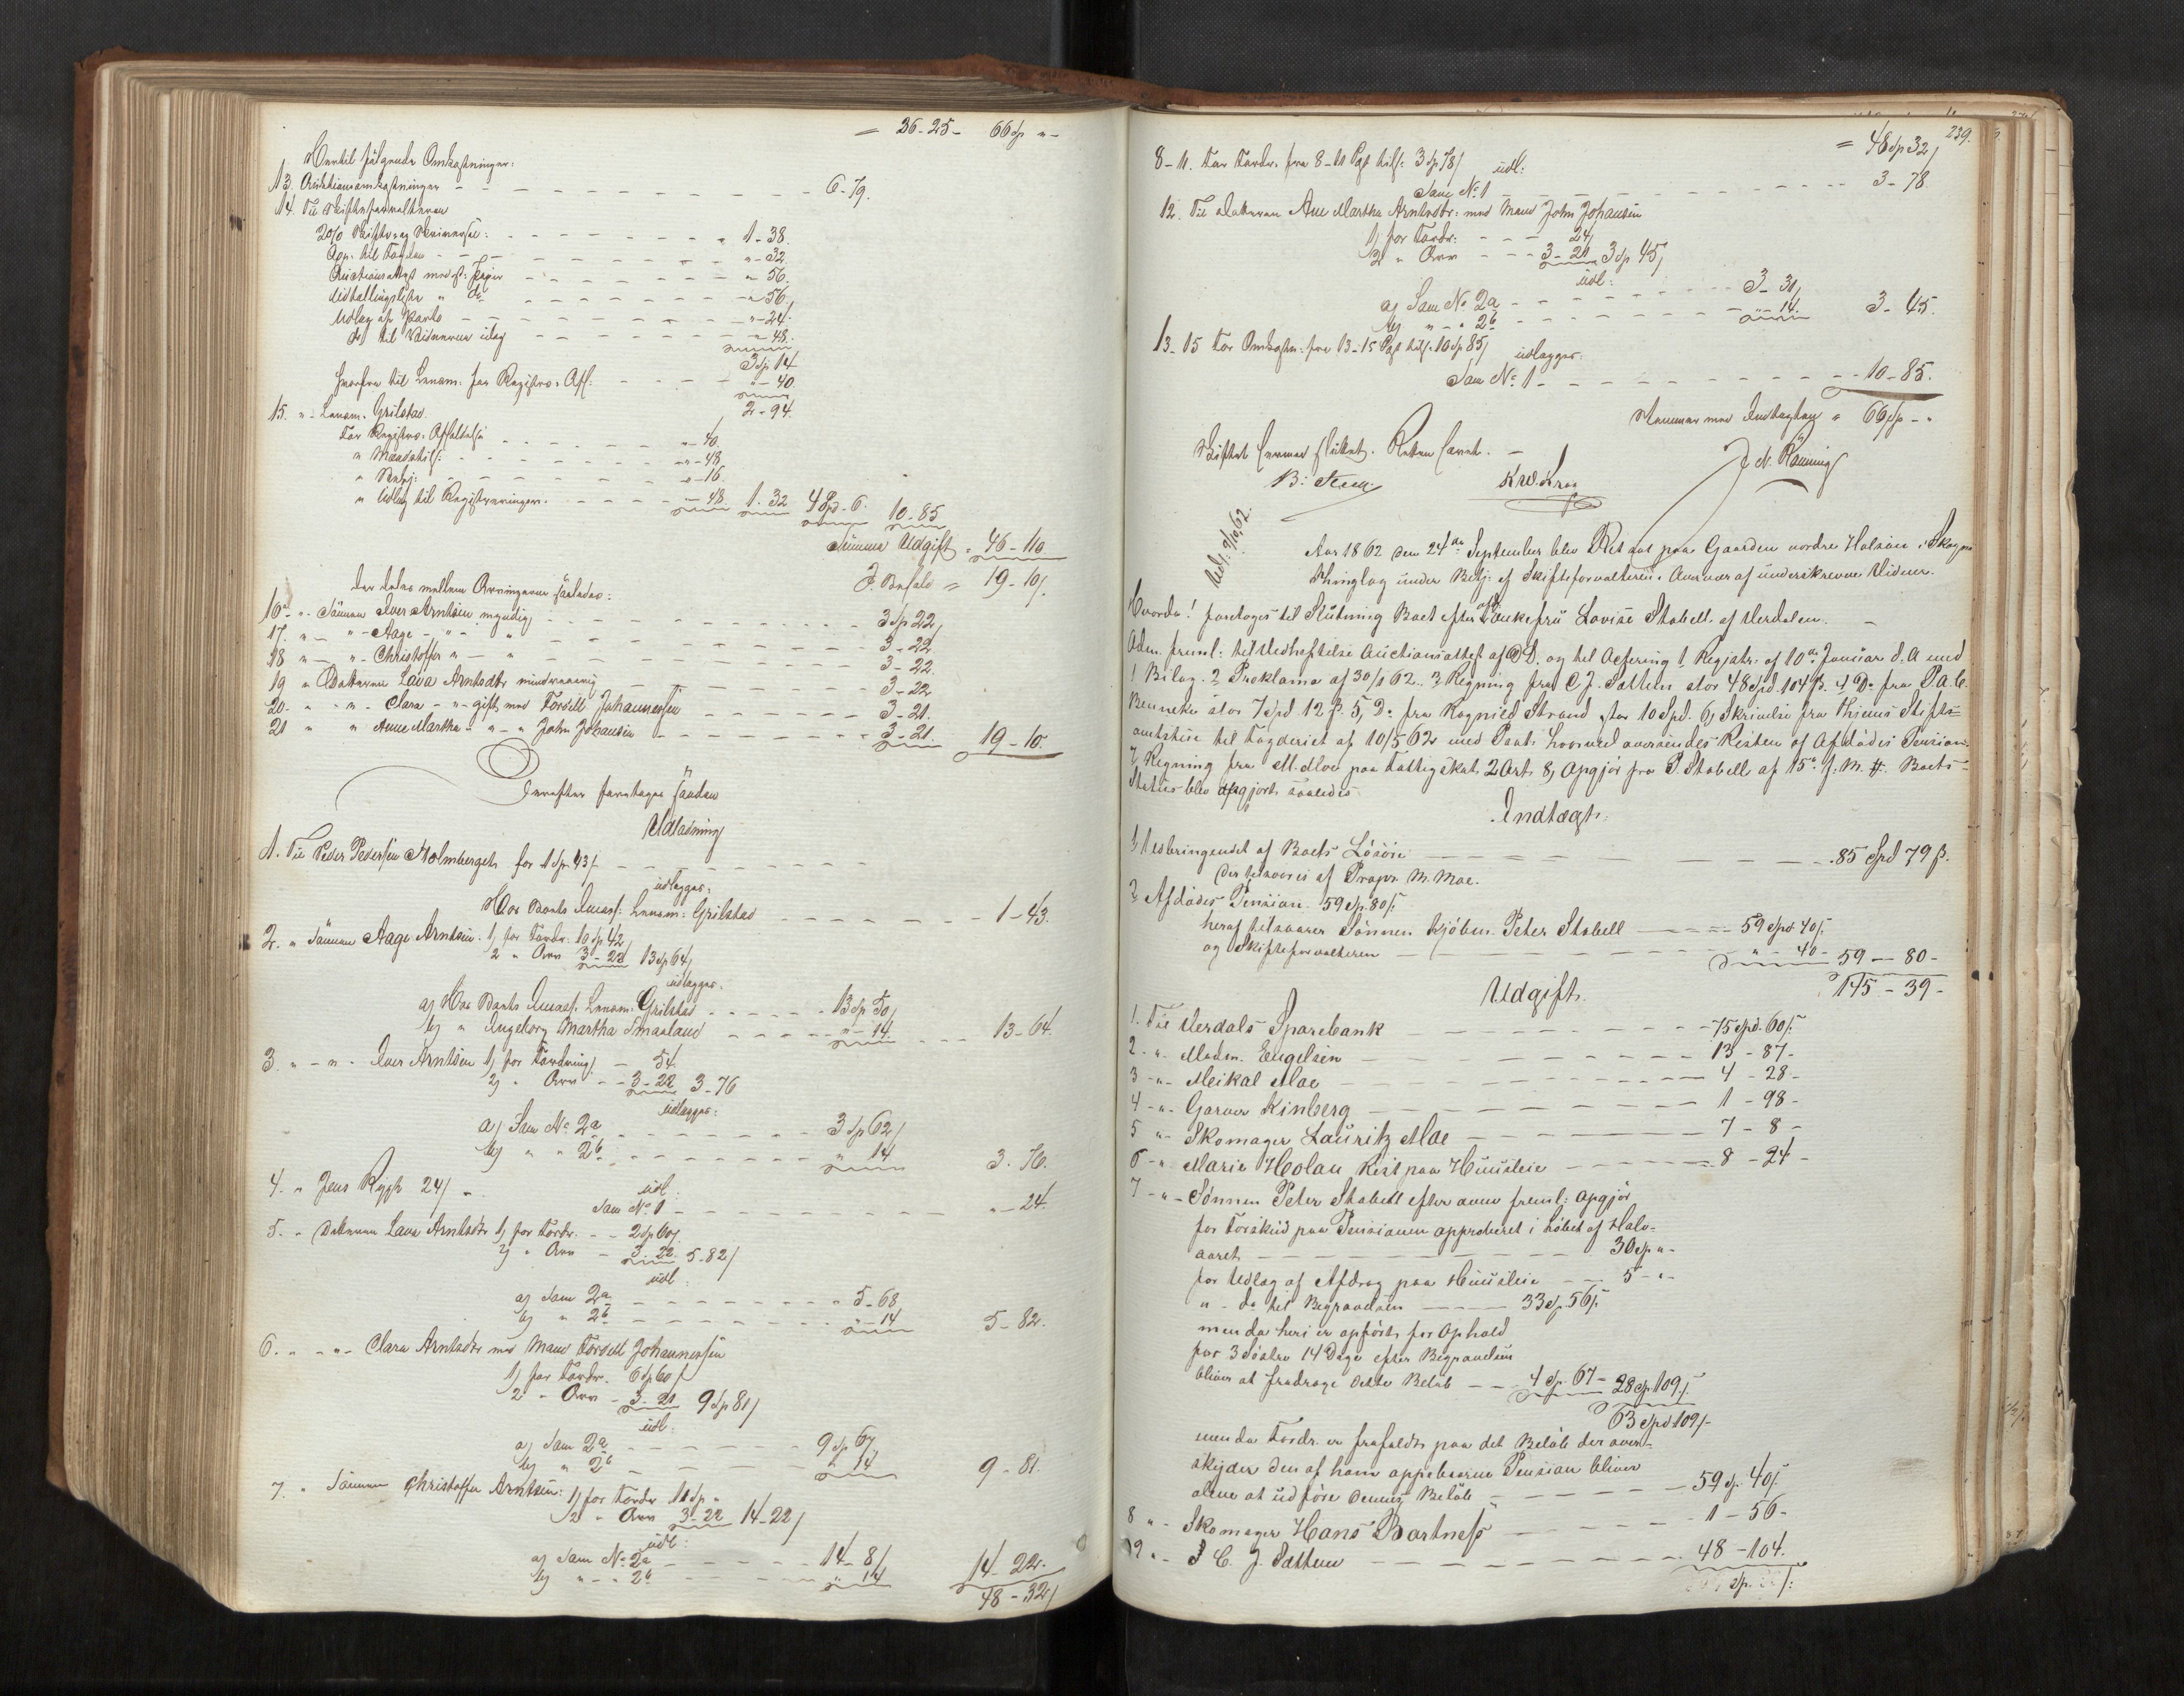 = 36-25- 66 Sp „-
Hertil følgende Omkostninger:
13. Auktionsomkostninger - - - 6-79.
14. Til Skifteforvalteren
2% Skifte og Skriversal: - - - „ 1-38.
App. til Fogden - - - „-32.
Auctionsattest med st: Papir - - - „ 56.
Udtallingsliste „ do - - - „ 56.
Udlæg af Porto - - - „-24.
do til Vidnerne idag - - - „ 48.
3 Sp 14
herfra til Lensm: for Registr: Aff: - - - „-40.
2-94.
15. „- Lensm. Grilstad.
For Registr: Afholdelse - - - „-40.
„ - - - „-48
„ - - - „-16.
„ Udlæg til Registreringen. - - - „-48. 1.32 4 Spd-6. 10-85
Summa Udgift = 46-110
J. Behold = 19-10/.
der deles mellem Arvingerne saaledes:
16. „- Sønnen Iver Arntsen myndig, - - - 3 Sp 22,
17. „- „- Aage - „- „ - - - 3-22.
18 „- „- Christoffer „- „ - - - 3-22.
19 „ Datteren Lava Arntsdtr mindreaarig - - - 3-22
20- „ - „- Clara - „- gift med Tordell Johannessen - - - 3-21.
21 „ „ Anne Martha - „ - „ John Johansen - - - 3-21. 19-10.
Derefter foretages saadan
Udlodning
1. Til Peder Pedersen Holmberget for 1 Sp. 43/- - - -
udlægges:
Hos Boets Incass: Lensm: Grilstad - - - 1-43.
2. „ Sønnen Aage Arntsen. 1, for Fordr: 10 Sp 42,
2 „ Arv 3-22 13 Sp 64,
udlægges:
a, Hos Boets Incass. Lensm: Grilstad - - - 13 Sp 50,
b, „ Ingeborg Martha Smaaland - - - „-14. - - - 13-64.
3. „ - „ - Iver Arntsen 1, for Fordring - 54.
2, „ Arv - - 3-22 3-76
udlægges:
a, Sam No 2a - - - 3 Sp 62,
b, „ „ 2b, - - - „ 14 3.76.
4. „ Jens Rygh 24/ „
udl.
Sam No 1 - - - „-24.
5. „ Datteren Lava Arntsdtr 1, for Fordr: - - 2 Sp 60,
2, „ Arv - 3-22. 5-82/
udl:
a, Sam 2a - - - „ 5-68
b, „ 2b - - - „-14 5-82.
6. „- „- Clara Arntsdtr med Mand Tordell Johannessen
1, for Fordr. 6 Sp 60,
2 „ Arv - 3-21 9 Sp 81/
udl:
a, Sam 2a - - - 9 Sp 67.
b, „ 2b - - - „ 14 9-81.
7. „ Sønnen Christoffer Arntsen: 1, for Fordr 11 Sp „
2 „ Arv 3-22 14-22/
udl:
a, Sam No 2a - - - 14-8/
b, „ - „ 2b - - - „ 14 14-22.
48-32/
239.
= 48 Sp 32/
8-11. For Fordr. fra 8-11 Pst tils: 3 Sp 78/ udl:
Sam No 1 - - - 3-78
12. Til Datteren Ane Martha Arntsdtr: med Mand John Johansen
1, for Fordr: - - - 24,
2 „ Arv - - - 3-21 3 Sp 45,
udl:
a, Sam No 2a - - - 3-31,
b, „ - „ 2b - - - „-14. 3-45.
13-15 For Omkostn: fra 13-15 Pst tils. 10 Sp 85/ udlægges:
Sam No 1 - - - 10-85.
Stemmer med Indtægten = 66 Sp - „
Skiftet hermed sluttet. Retten hævet. -
J. N. Rønning
Aar 1862 den 24de September blev Ret sat paa Gaarden nordre Halsan i Skogns
Thinglag under Betj: af Skifteforvalteren i Overvær af underskrevne Vidner.
Hvorda! foretoges til Slutning Boet efter afd Enkefru Lovise Stabell af Værdalen. -
Adm. freml: til Vedheftelse Auctionsattest af D. D. og til Acfering 1, Registr: af 10de Januar d. A med
1 Bilag. 2 Proklama af 30/1 62. 3 Regning fra C J. Sattem stor 48 Spd. 104 ß. 4 Do fra P. A. C.
Benneke stor 7 Spd 12 ß. 5, Do fra Ragnild Strand stor 10 Spd. 6, Skrivelse fra Thjems Stifts=
amtstue til Fogderiet af 10/5 62 med Post hvorved oversendes Resten af Afdødes Pension
7, Regning fra M. Moe paa Fattigskat 2 Ort 8, Opgjør fra P. Stabell af 15de f. M. #. Boets=
Status blev opgjort saaledes.
Indtægt:
1, Udbringendet af Boets Løsøre - - - 85 Spd 79 ß.
der tilsvares af Propr. M. Moe.
2, Afdødes Pension 59 Sp. 80/
heraf tilsvarer Sønnen Kjøbm. Peter Stabell - - - 59 Spd 40/.
og Skifteforvalteren - - - „ - 40 - 59 - 80 -
145 - 39 -
Udgift.
1. Til Værdals Sparebank - - - 75 Spd. 60/.
2 - „ - Madm. Engelsen - - - 13 - 87 -
3 - „ - Meikal Moe - - - 4 - 28 -
4 - „ - Garver Kinberg - - - 1 - 98 -
5 „ - Skomager Lauritz Moe - - - 7 - 8 -
6 - „ Marie Holan Rest paa Huusleie - - - 8 - 24 -
7 - „ - Sønnen Peter Stabell efter anm freml: Opgjør
for Forskud paa Pensionen approberet i Løbet af Halv-
aaret - - - 30 Sp „ -
for Udlæg af Afdrag paa Huusleie - - - 5 - „ -
„ - do til Begravelsen - - - 33 Sp 56/
men da heri er opført for Ophold
for 3 Søstre 14 Dage efter Begravelsen
bliver at fradrage dette Beløb - - - 4 Sp. 67 - 28 Sp. 109/.
63 Spd 109/-
men da Fordr. er frafaldt paa det Beløb der over-
skyder den af ham oppebaarne Pension bliver
alene at udføre denne Beløb - - - 59 Sp. 40/
8 „ - Skomager Hans Bartness - - - 1 - 56 -
9 „ - C. J. Sattem - - - 48 - 104.